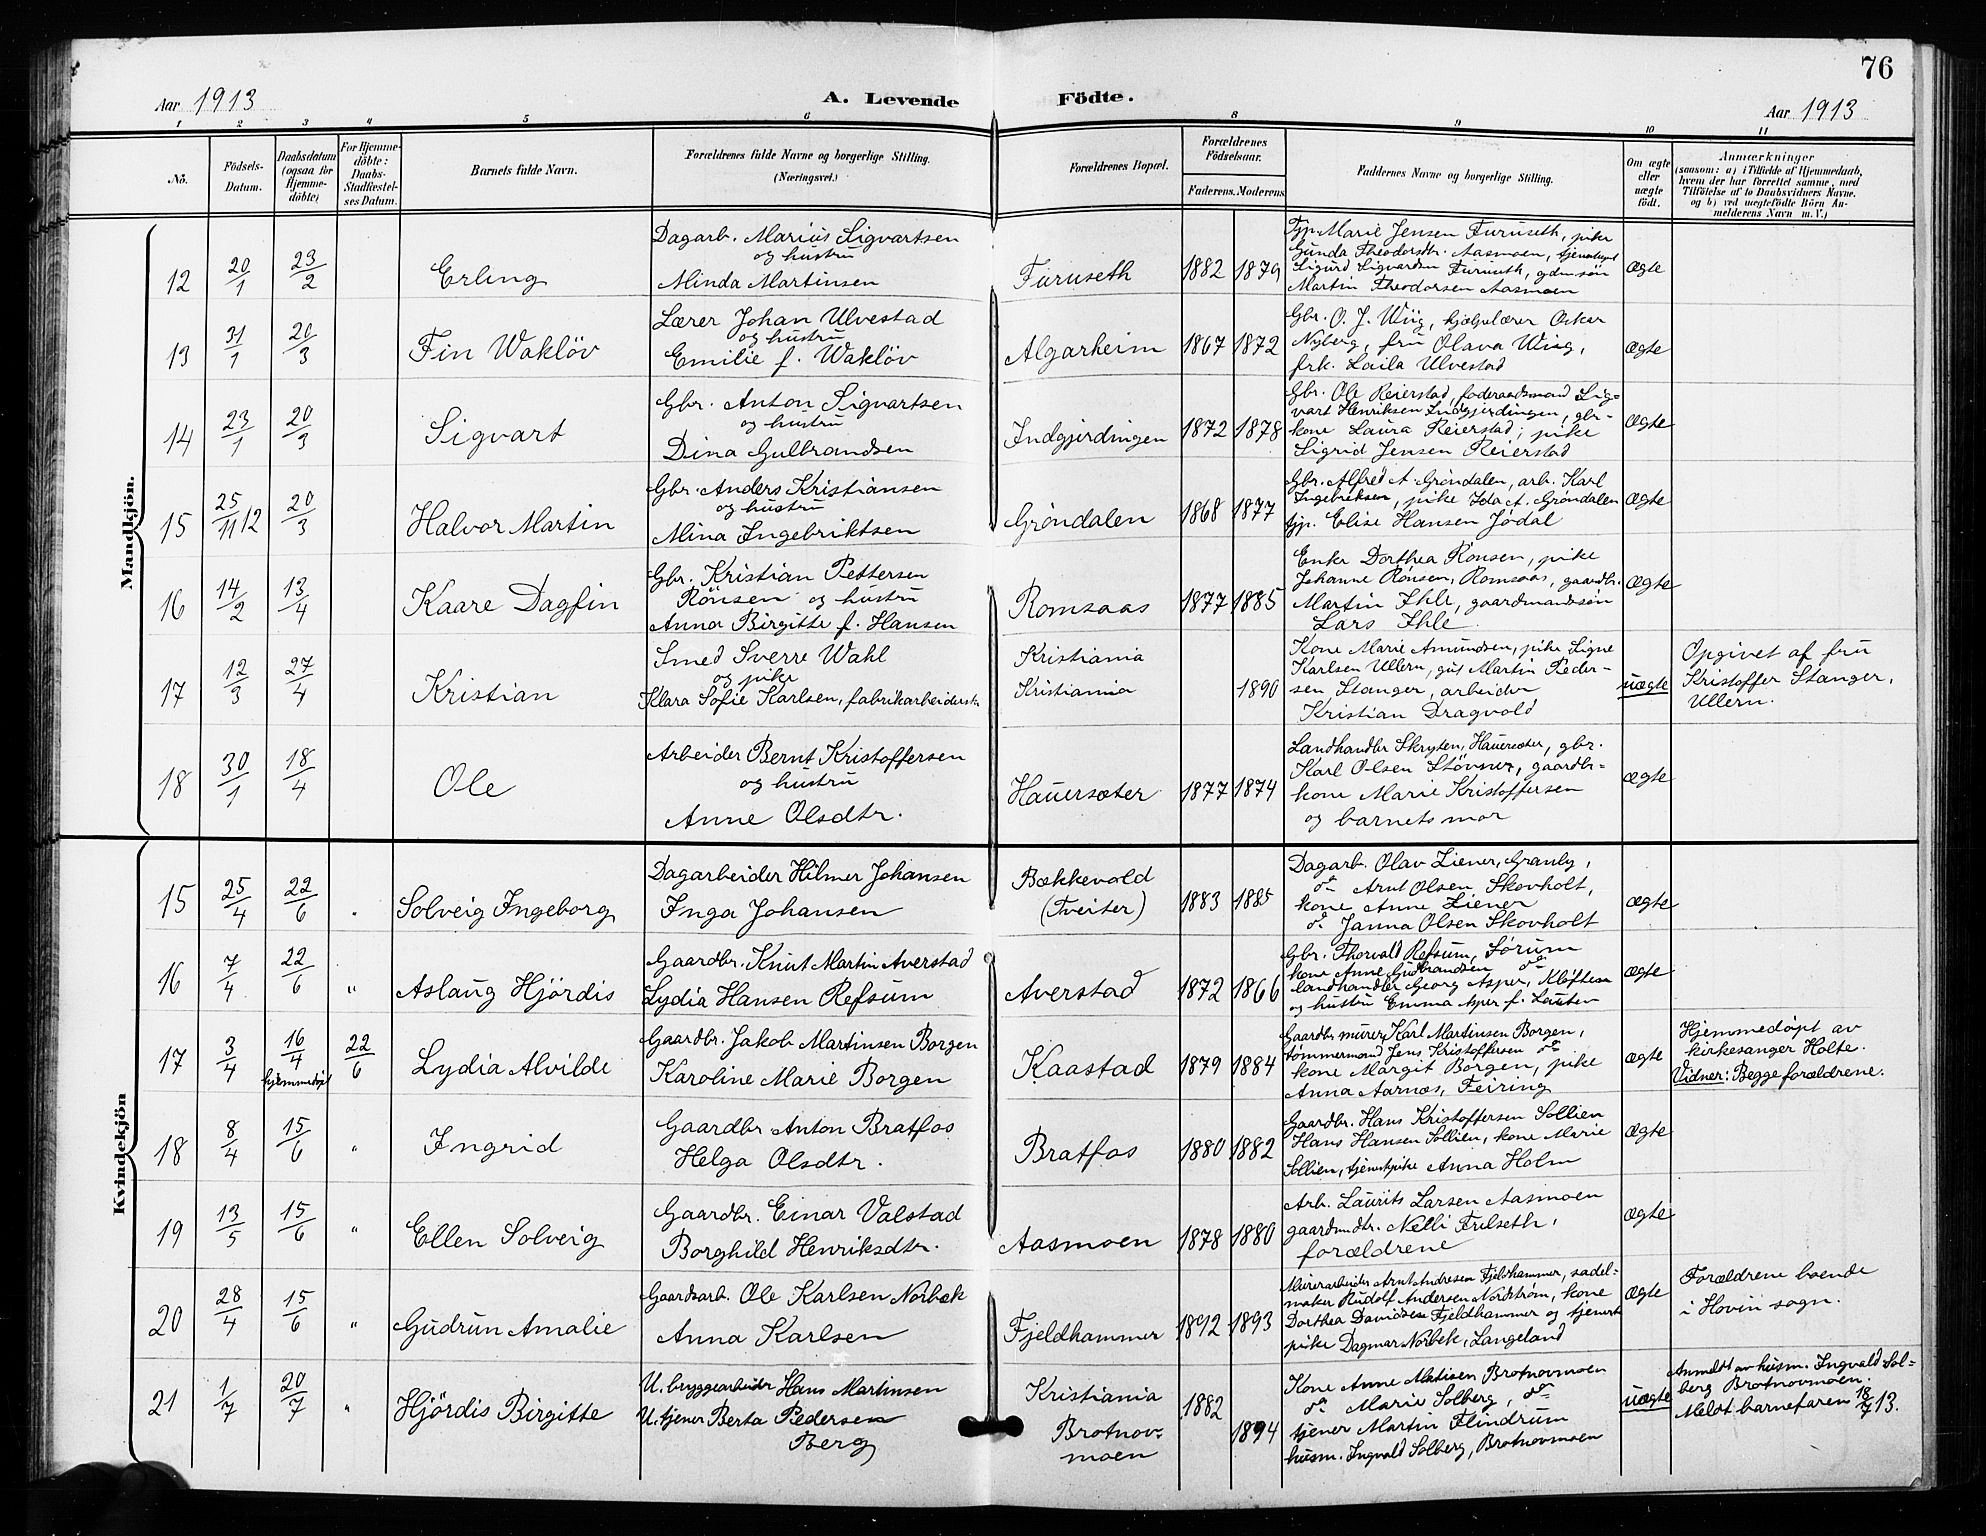 76
Aar 1913
A. Levende Födte.
Aar 1913
1 2 3 4 5 6 8 9 10 11
No.
Födsels-
Datum.
Daabsdatum
(ogsaa for
Hjemme-
döbte)
For Hjemme-
döbte:
Daabs-
Stadfæstel-
ses Datum.
Barnets fulde Navn.
Forældrenes fulde Navne og borgerlige Stilling.
(Næringsvei.)
Forældrenes Bopæl.
Forældrenes
Födselsaar.
Faderens. Moderens.
Faddernes Navne og borgerlige Stilling.
Om ægte
eller
uægte
født.
Anmærkninger
(saasom: a) i Tilfælde af Hjemmedaab,
hvem der har forrettet samme, med
Tilföielse af to Daabsvidners Navne.
og b) ved uægtefödte Börn An-
melderens Navn m. V.)
Mandkjön.
12
20/1
23/2
Erling
Dagarb. Marius Sigvartsen
og hustru
Minda Martinsen
Furuseth
1882
1879
Tjp. Marie Jensen Furuseth, pike
Gunda Theodorsdtr. Aasmoen,
Sigurd Sigvardsen Furuseth, gdm.søn
Martin Theodorsen Aasmoen
ægte
13
31/1
20/3
Fin Wakløv
Lærer Johan Ulvestad
og hustru
Emilie f. Wakløv
Algarheim
1867
1872
Gbr. O. J. Wiig, hjælpelærer Oskar
Nyberg, fru Olava Wiig,
frk. Laila Ulvestad
ægte
14
23/1
20/3
Sigvart
Gbr. Anton Sigvartsen
og hustru
Dina Gulbrandsen
Indgjerdingen
1872
1878
Gbr. Ole Reierstad, føderaadsmand Sig-
vart Henriksen Indgjerdingen, gbr-
kone Laura Reierstad; pike
Sigrid Jensen Reierstad
ægte
15
25/11 12
20/3
Halvor Martin
Gbr. Anders Kristiansen
og hustru
Mina Ingebriktsen
Gröndalen
1868
1877
Gbr. Alfred A. Gröndalen, arb. Karl
Ingebriksen, pike Ida A. Gröndalen
tjp. Elise Hansen Jödal
ægte
16
14/2
13/4
Kaare Dagfin
Gbr. Kristian Pettersen
Rönsen og hustru
Anna Birgitte f. Hansen
Romsaas
1877
1885
Enke Dorthea Rönsen, pike
Johanne Rönsen, Romsaas, gaardbr.
Martin Ihle, gaardmandssön
Lars Ihle
ægte
17
12/3
27/4
Kristian
Smed Sverre Wahl
og pike
Klara Sofie Karlsen, fabrikarbeiderske
Kristiania
Kristiania
1890
Kone Marie Amundsen, pike Signe
Karlsen Ullern, gut Martin Peder-
sen Stanger, arbeider
Kristian Dragvold
uægte
Opgivet af fru
Kristoffer Stanger,
Ullern.
18
30/1
18/4
Ole
Arbeider Bernt Kristoffersen
og hustru
Anne Olsdtr.
Hauersæter
1877
1874
Landhandler Skryten, Hauersæter, gbr.
Karl Olsen Stövner, gaardbr-
kone Marie Kristoffersen
og barnets mor
ægte
Kvindekjön
15
25/4
22/6
"
Solveig Ingeborg
Dagarbeider Hilmer Johansen
Inga Johansen
Bækkevold
(Tveiter)
1883
1885
Dagarb. Olav Liener, Granly,
do Arnt Olsen Skovholt,
kone Anne Liener
do Janna Olsen Skovholt
ægte
16
7/4
22/6
"
Aslaug Hjördis
Gaardbr. Knut Martin Averstad
Lydia Hansen Refsum
Averstad
1872
1866
Gbr. Thorvald Refsum, Sørum
kone Anne Gudbrandsen do
landhandler Georg Asper, Kløften
og hustru Emma Asper f.
ægte
17
3/4
16/4
hjemmedöpt
22/6
Lydia Alvilde
Gaardbr. Jakob Martinsen Borgen
Karoline Marie Borgen
Kaastad
1879
1884
Gaardbr murer Karl Martinsen Borgen,
tømmermand Jens Kristoffersen do
kone Margit Borgen, pike
Anna Aarnæs, Feiring
ægte
Hjemmedöpt av
kirkesanger Holte.
Vidner: Begge forældrene.
18
8/4
15/6
"
Ingrid
Gaardbr Anton Bratfos
Helga Olsdtr.
Bratfos
1880
1882
Gaardbr. Hans Kristoffersen Sollien
Hans Hansen Sollien, kone Marie
Sollien, tjenestpike Anna Holm
ægte
19
13/5
15/6
"
Ellen Solveig
Gaardbr. Einar Valstad
Borghild Henriksdtr.
Aasmoen
1878
1880
Arb. Laurits Larsen Aasmoen
gaardmdtr. Nelli Frilseth,
forældrene
ægte
20
28/4
15/6
"
Gudrun Amalie
Gaardsarb. Ole Karlsen Norbæk
Anna Karlsen
Fjeldhammer
1892
1893
Murerarbeider Arnt Andresen Fjeldhammer, sadel-
maker Rudolf Andersen Nordstrøm, kone
Dorthea Davidsen Fjeldhammer og tjenest
pike Dagmar Norbek, Langeland
ægte
Forældrene boende
i Hovin sogn.
21
1/7
20/7
"
Hjördis Birgitte
U. bryggearbeider Hans Martinsen
U. tjener Berta Pedersen
Berg
Kristiania
Brotnov-
moen
1882
1894
Kone Anne Matisen Brotnovmoen
do Marie Solberg, do
tjener Martin Flindrum
husm. Ingvald Solberg, Brotnovmoen
uægte
Anmeldt av husm. Ingvald Sol-
berg Brotnovmoen.
Meldt barnefaren 18/7 13.